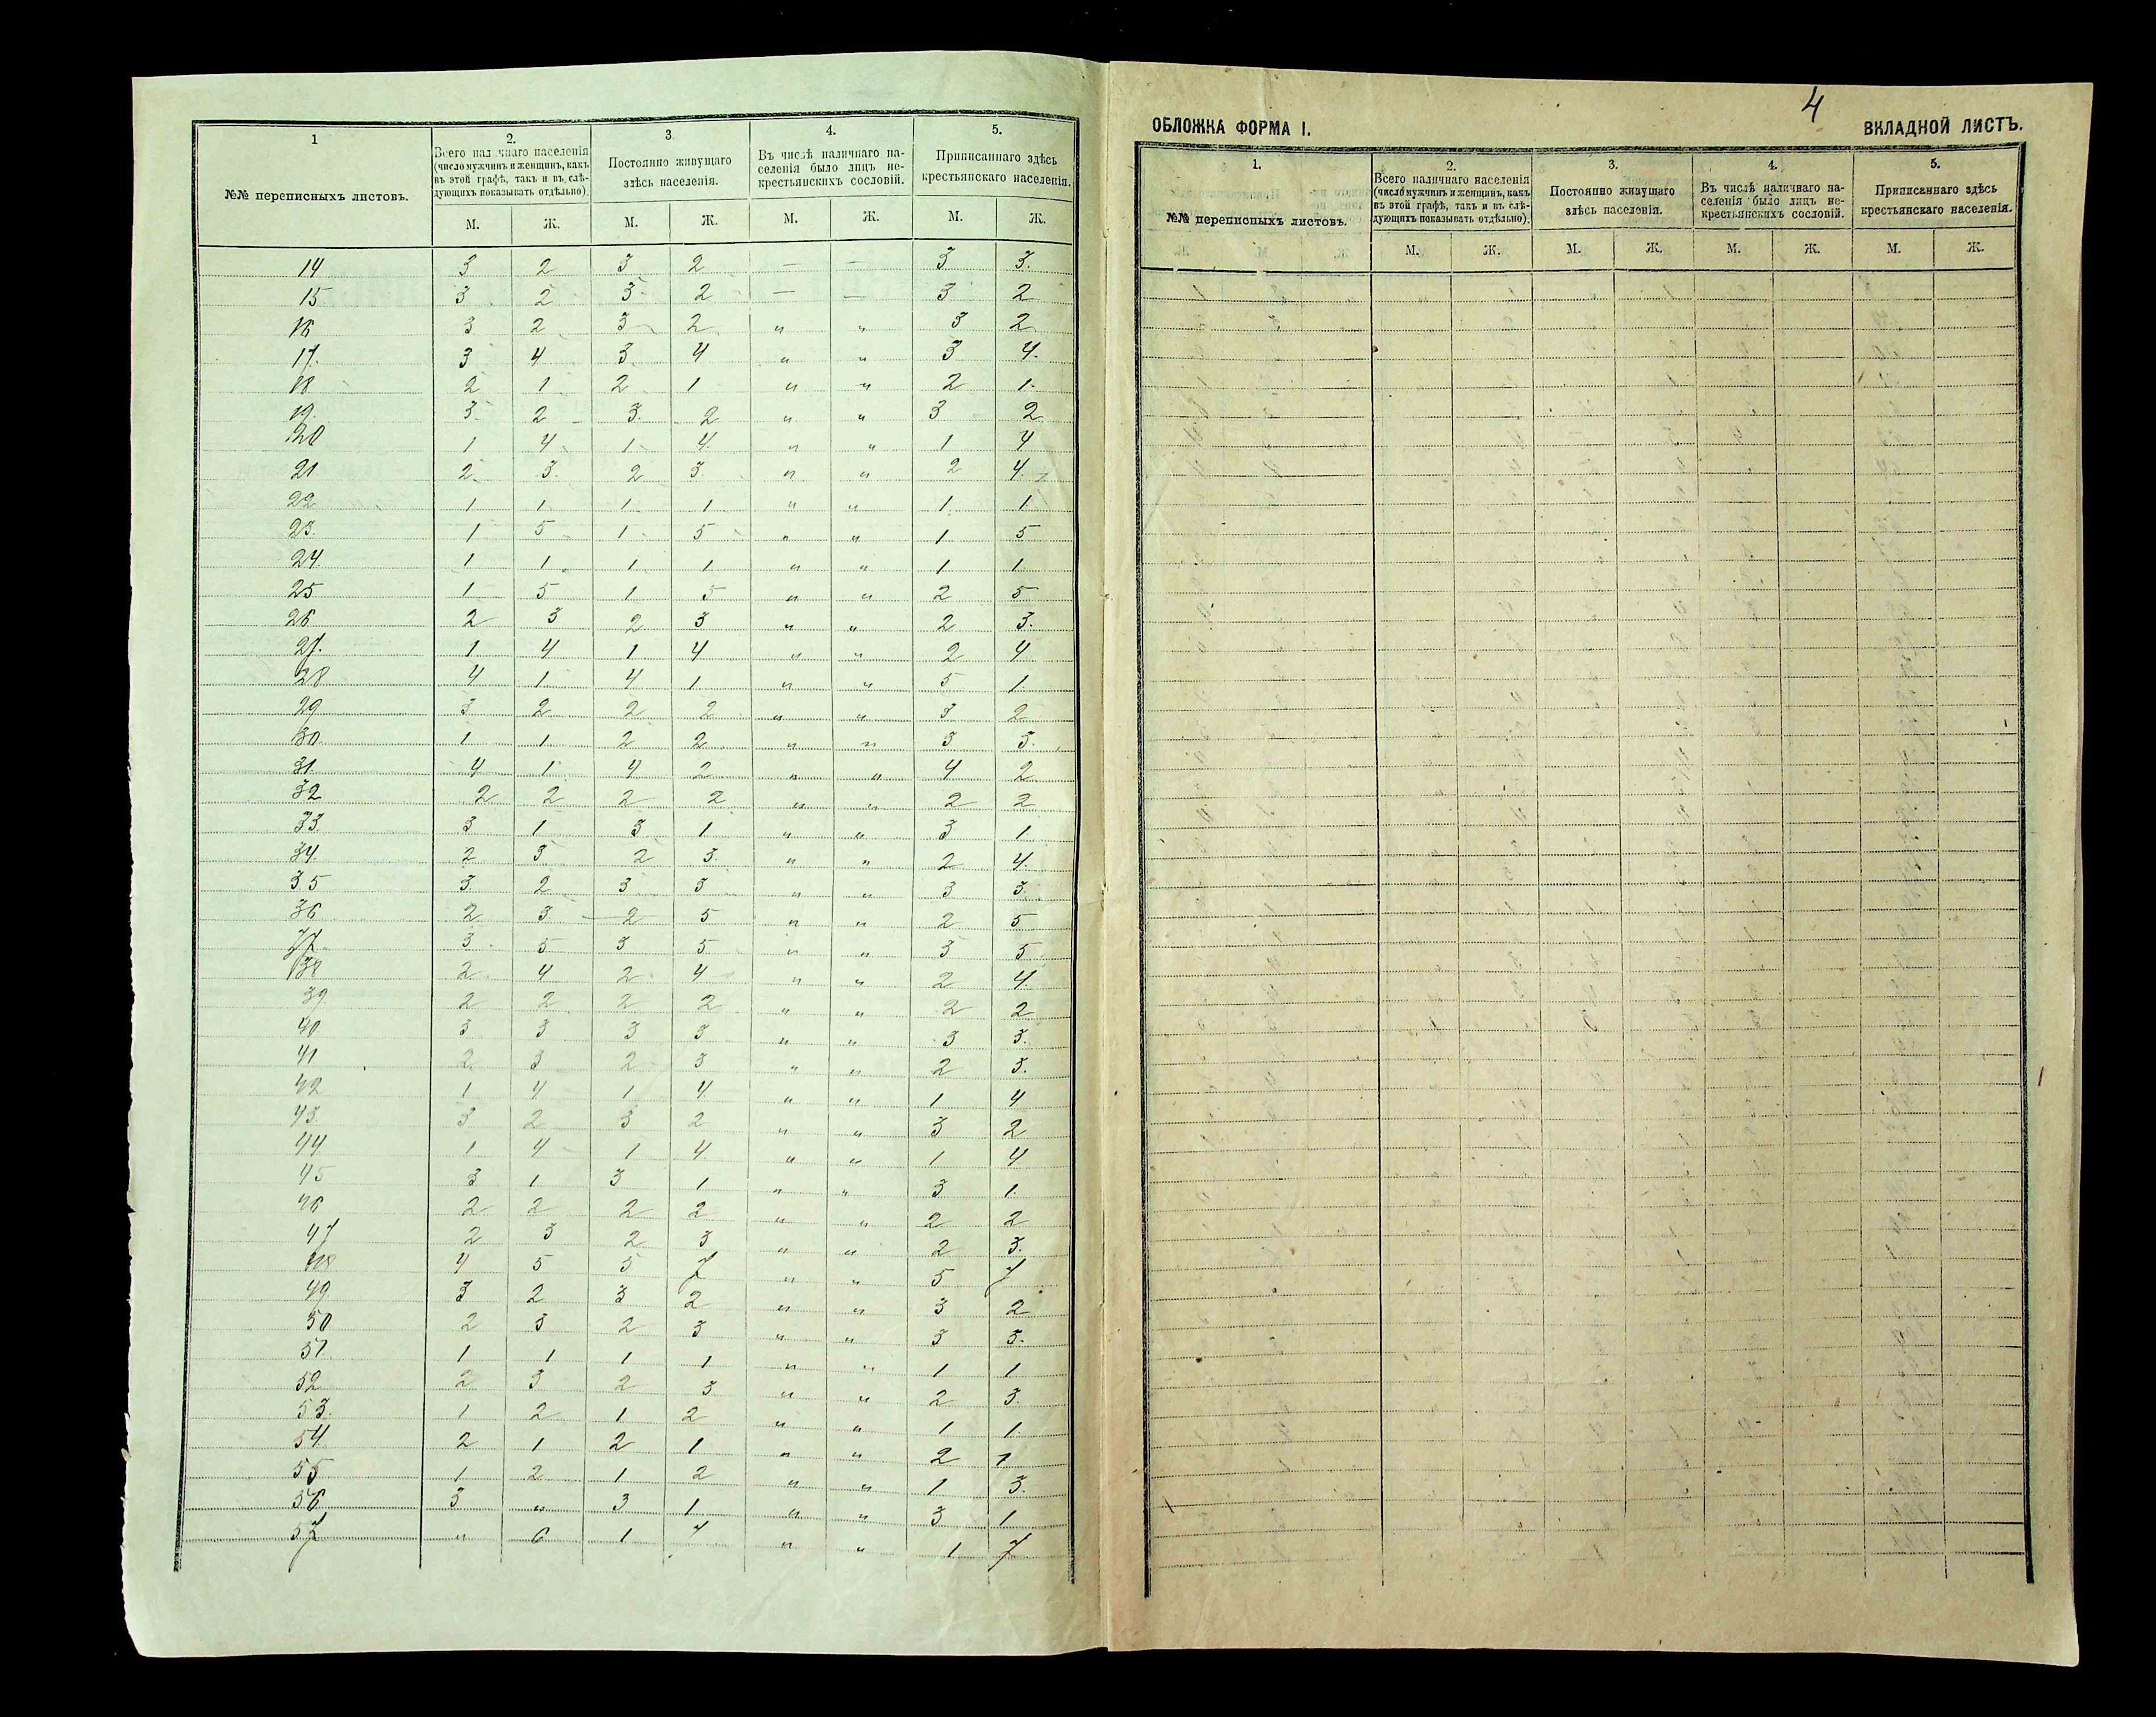 1
2.
3
4.
5.
№№ переписныхъ листовъ.
Всего наличнаго населенія
(число мужчинъ и женщинъ, какъ
въ этой графѣ, такъ и въ слѣ-
дующихъ показывать отдѣльно).
Постоянно живущаго
здѣсь населенія.
Въ числѣ наличнаго на-
селенія было лицъ не-
крестьянскихъ сословій.
Приписаннаго здѣсь
крестьянскаго населенія.
М. Ж. М. Ж. М. Ж. М. Ж.
14 3 2 3 2 — — 3 3.
15 3 2 3 2 — — 3 2
16 3 2 3 2 " " 3 2
17. 3 4 3 4 " " 3 4.
18 2 1 2 1 " " 2 1.
19. 3 2 3. 2 " " 3 2
20 1 4 1 4. " " 1 4
21 2 3. 2 3. " " 2 4.
22 1 1 1 1 " " 1 1
23. 1 5 1 5 " " 1 5
24. 1 1 1 1 " " 1 1.
25 1 5 1 5 " " 2 5
26 2 3 2 3 " " 2 3.
27. 1 4 1 4 " " 2 4
28 4 1 4 1 " " 5 1.
29 3 2 2 2 " " 3 2
30 1 1 2 2 " " 3 3.
31. 4 1 4 2 " " 4 2
32 2 2 2 2 " " 2 2
33 3 1 3 1 " " 3 1
34. 2 3 2 3. " " 2 4.
35 3 2 3 3 " " 3 3.
36 2 3 2 5 " " 2 5
37. 3 5 3 5 " " 3 5
38 2 4 2 4 " " 2 4.
39 2 2 2 2 " " 2 2
40 3 3 3 3 " " 3 3.
41 2 3 2 3 " " 2 3.
42 1 4 1 4. " " 1 4
43 3 2 3 2 " " 3 2
44 1 4 1 4. " " 1 4
45 3 1 3 1 " " 3 1.
46 2 2 2 2 " " 2 2
47 2 3 2 3 " " 2 3.
48 4 5 5 7 " " 5 7
49 3 2 3 2 " " 3 2
50 2 3 2 3 " " 3 3.
51. 1 1 1 1 " " 1 1
52 2 3 2 3 " " 2 3.
53. 1 2 1 2 " " 1 1.
54. 2 1 2 1 " " 2 1
55 1 2 1 2 " " 1 3.
56 3 " 3 1 " " 3 1
57 " 6 1 7 " " 1 7
4
ОБЛОЖКА ФОРМА I.
ВКЛАДНОЙ ЛИСТЪ.
1.
2.
3.
4.
5.
№№ переписныхъ листовъ.
Всего наличнаго населенія
(число мужчинъ и женщинъ, какъ
въ этой графѣ, такъ и въ слѣ-
дующихъ показывать отдѣльно).
Постоянно живущаго
здѣсь населенія.
Въ числѣ наличнаго на-
селенія было лицъ не-
крестьянскихъ сословій.
Приписаннаго здѣсь
крестьянскаго населенія.
М. Ж. М. Ж. М. Ж. М. Ж.